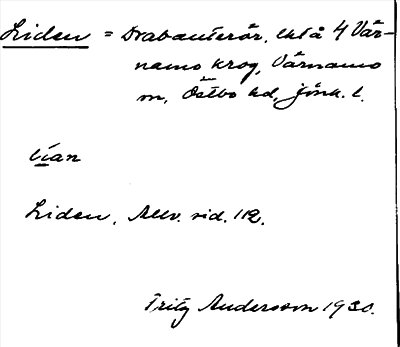 Liden = Drabanterör, lht å 4 Vär-
namo krog, Värnamo
sn, Östbo hd, Jönk. l.
lían
Liden, Allv. sid. 112.
Fritz Andersson 1930.